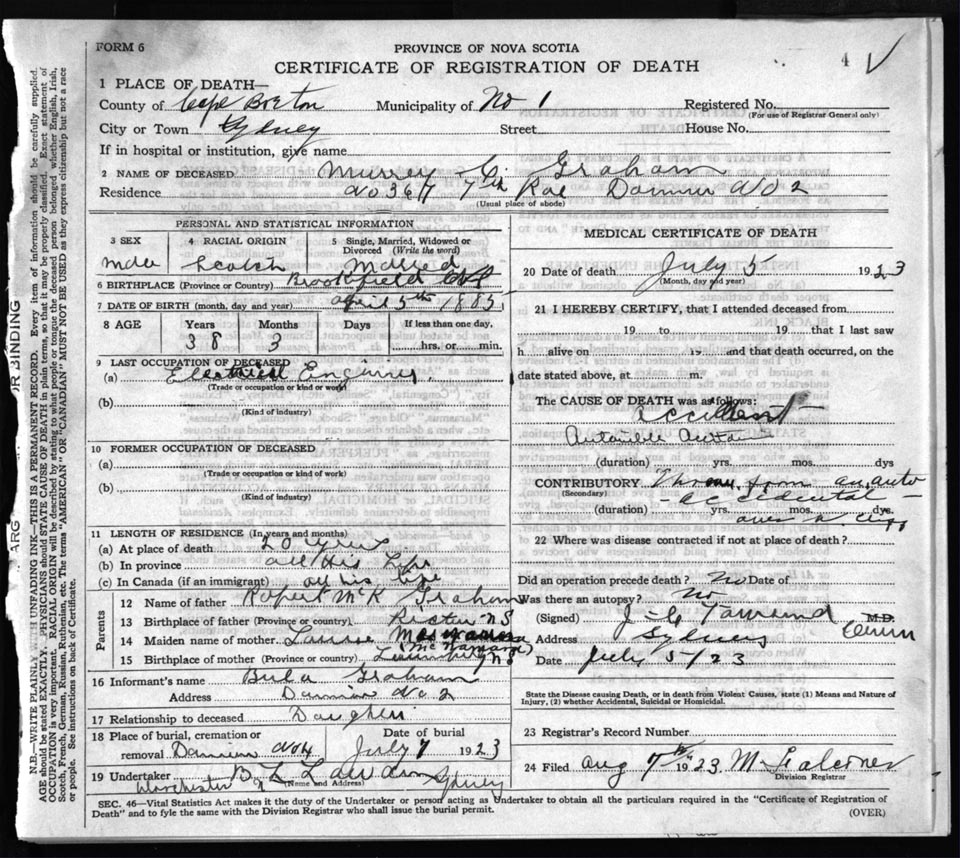 FORM 6
PROVINCE OF NOVA SCOTIA
CERTIFICATE OF REGISTRATION OF DEATH
4
1 PLACE OF DEATH—
County of Cape Breton Municipality of No 1 Registered No.
(For use of Registrar General only)
City or Town Sydney Street House No.
If in hospital or institution, give name
2 NAME OF DECEASED Murrey C. Graham
Residence No 36 7th Dominion No 2
(Usual place of abode)
PERSONAL AND STATISTICAL INFORMATION
3 SEX 4 RACIAL ORIGIN 5 Single, Married, Widowed or Divorced (Write the word)
male Scotch Married
6 BIRTHPLACE (Province or Country) Brookfield
7 DATE OF BIRTH (month, day and year) april 5th 1885
8 AGE Years Months Days If less than one day,
38 3 hrs. or min.
9 LAST OCCUPATION OF DECEASED
(a) Electrical Engineer
(Trade or occupation or kind of work)
(b)
(Kind of industry)
10 FORMER OCCUPATION OF DECEASED
(a)
(Trade or occupation or kind of work)
(b)
(Kind of industry)
11 LENGTH OF RESIDENCE (In years and months)
(a) At place of death 20 years
(b) In province all his Life
(c) In Canada (if an immigrant) all his life
Parents
12 Name of father Rupert McK Graham
13 Birthplace of father (Province or country) N S
14 Maiden name of mother
(McNamara)
15 Birthplace of mother (Province or country) N S
16 Informant's name Bula Graham
Address Dominion No 2
17 Relationship to deceased Daughter
18 Place of burial, cremation or removal Dominion No 4 Date of burial July 7 1923
19 Undertaker B L Sydney
(Name and Address)
MEDICAL CERTIFICATE OF DEATH
20 Date of death July 5 1923
(Month, day and year)
21 I HEREBY CERTIFY, that I attended deceased from
19 to 19 that I last saw
h alive on 19 and that death occurred, on the
date stated above, at m.
The CAUSE OF DEATH was as follows:
accident
(duration) yrs. mos. dys
CONTRIBUTORY Thrown from an auto
(Secondary) — accidental —
(duration) yrs. mos. dys.
over a
22 Where was disease contracted if not at place of death?
Did an operation precede death? no Date of
Was there an autopsy? no
(Signed) M.D.
Address Sydney
Date July 5/23
State the Disease causing Death, or in death from Violent Causes, state (1) Means and Nature of
Injury, (2) whether Accidental, Suicidal or Homicidal.
23 Registrar's Record Number
24 Filed Aug 7th 1923
Division Registrar
SEC. 46—Vital Statistics Act makes it the duty of the Undertaker or person acting as Undertaker to obtain all the particulars required in the "Certificate of Registration of
Death" and to fyle the same with the Division Registrar who shall issue the burial permit.
(OVER)
N.B.—WRITE PLAINLY WITH UNFADING INK—THIS IS A PERMANENT RECORD. Every item of information should be carefully supplied.
AGE should be stated EXACTLY. PHYSICIANS should STATE CAUSE OF DEATH in plain terms, so that it may be properly classified. Exact statement of
OCCUPATION is very important. RACIAL ORIGIN will be described by stating to what people or tongue the deceased person belonged whether English, Irish,
Scotch, French, German, Russian, Ruthenian, etc. The terms "AMERICAN" OR "CANADIAN" MUST NOT BE USED as they express citizenship but not a race
or people. See instructions on back of Certificate.
ARG OR BINDING